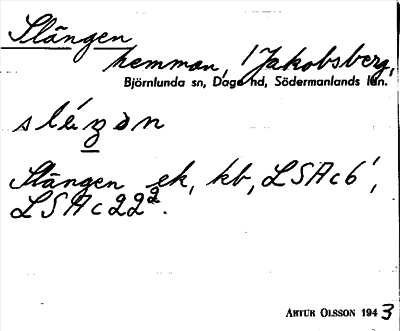 Slängen
hemman, 1 Jakobsberg,
Björnlunda sn, Daga hd, Södermanlands län.
Slängen ek, kb, LSA c6¹,
LSA c22².
ARTUR OLSSON 1943